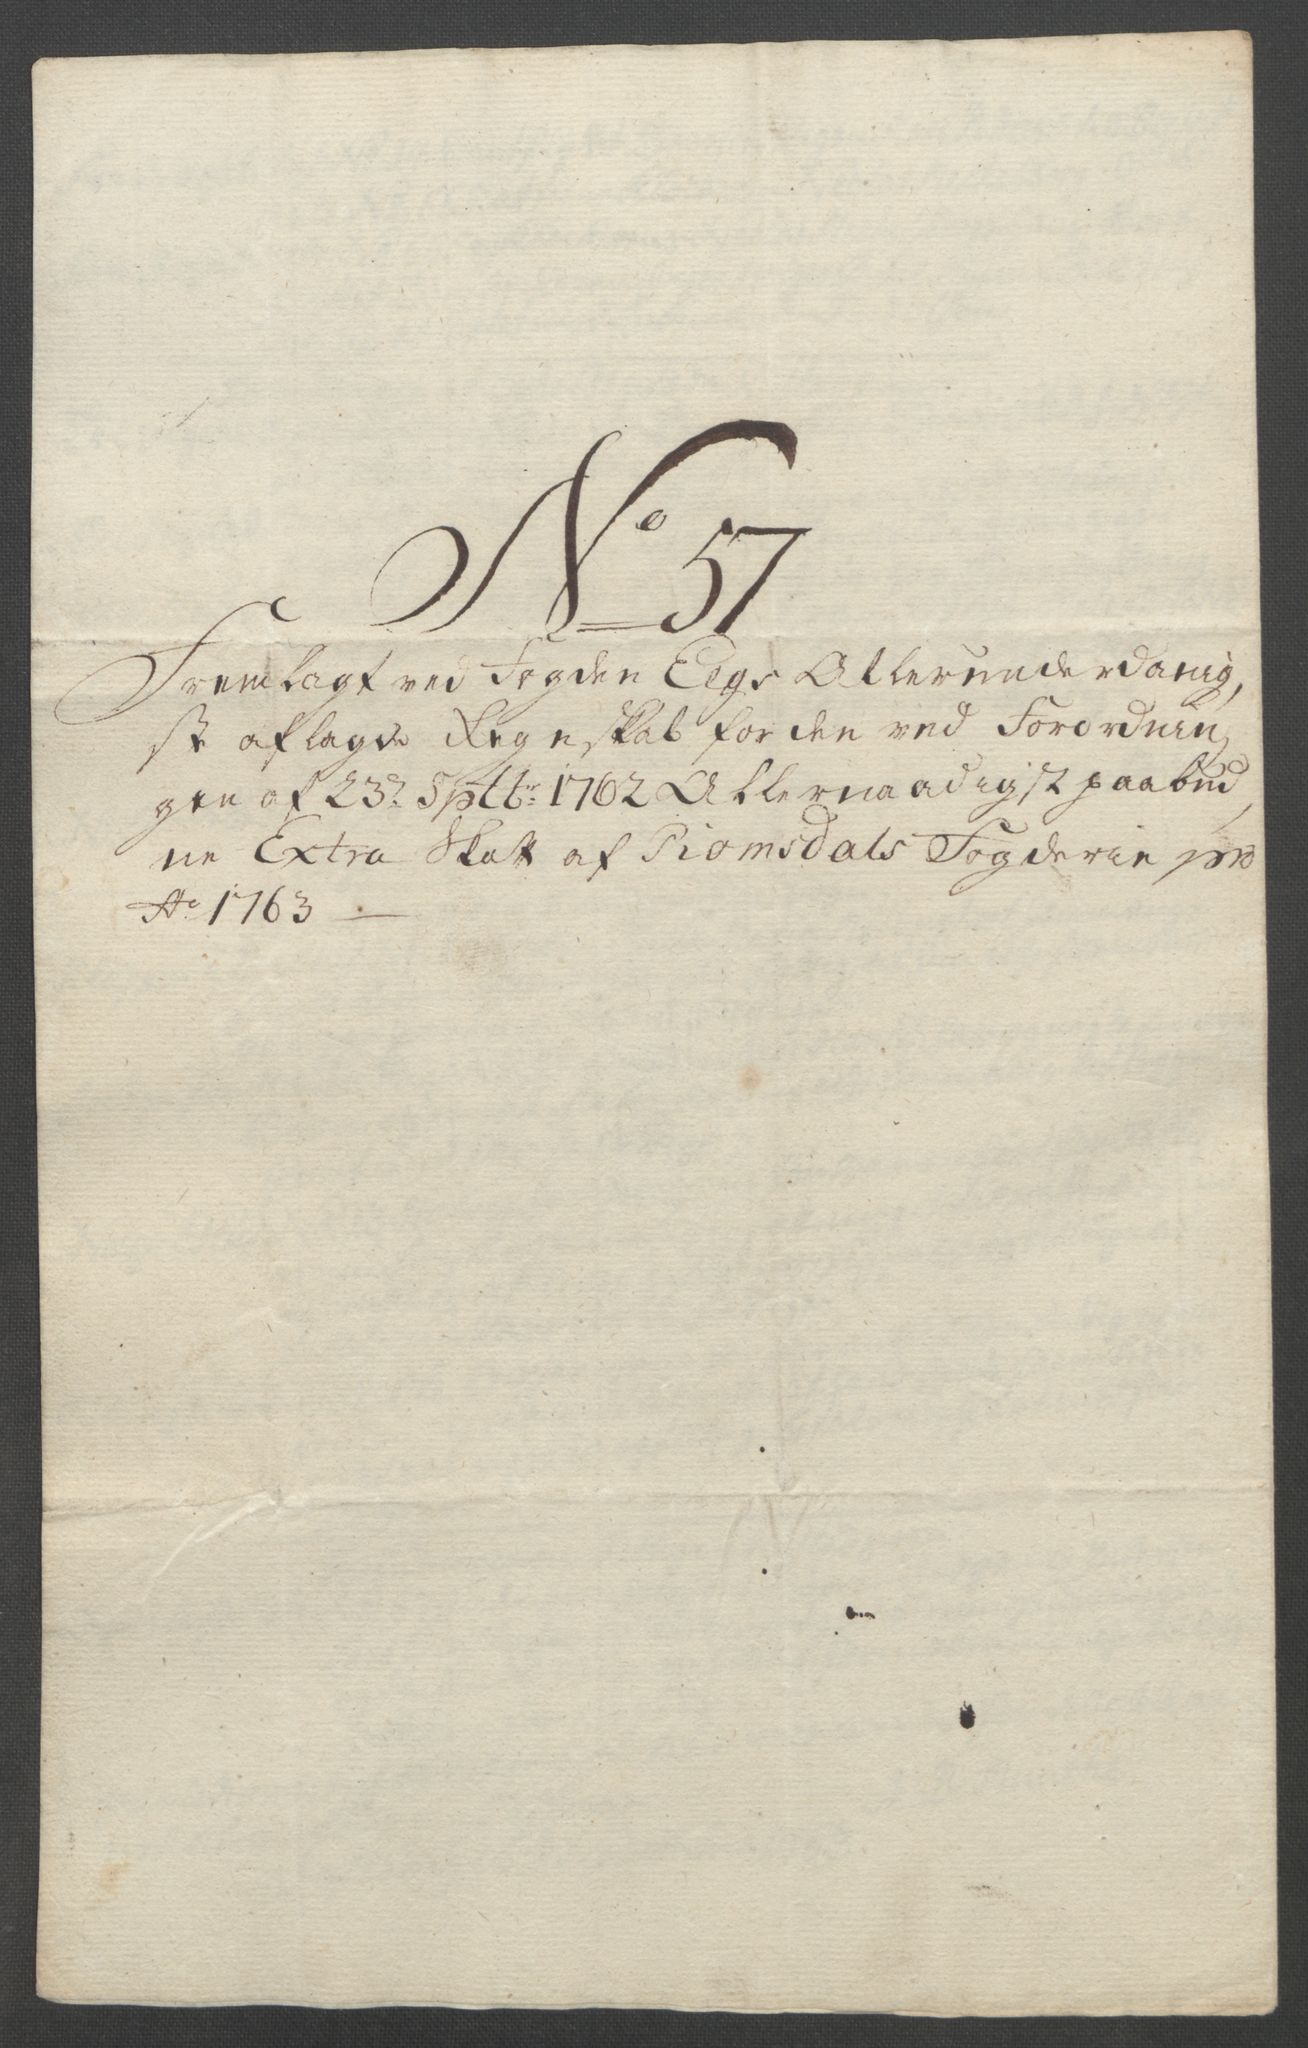 No 57
Fremlagt ved Fogden Eegs Allerunderdanig,
ste aflagde Regnskab for den ved Forordnin,
gen af 23de Septbr: 1762 Allernaadigst paabud,
ne Extra Skatt af Romsdals Fogderie pro
Ao 1763 —